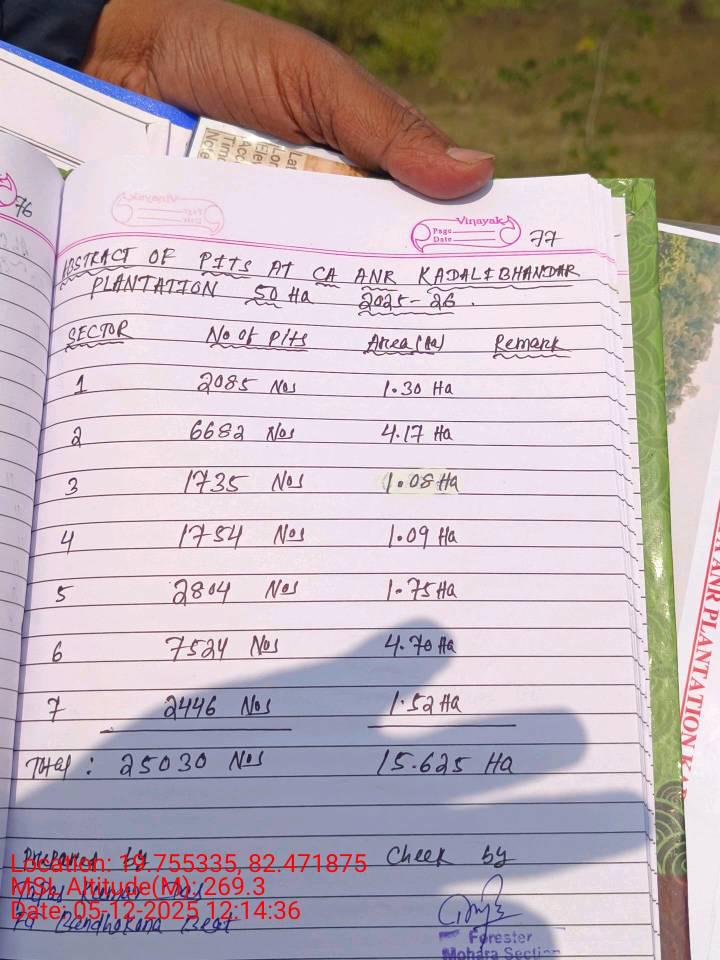 76
Lat
Lon
Elev
Acc
Time
Note
Vinayak
Page
Date
77
ABSTRACT OF PITS AT CA ANR KADALIBHANDAR
PLANTATION 50 Ha 2025-26.
SECTOR No of Pits Area(Ha) Remark
1 2085 Nos 1.30 Ha
2 6682 Nos 4.17 Ha
3 1735 Nos 1.08 Ha
4 1754 Nos 1.09 Ha
5 2804 Nos 1.75 Ha
6 7524 Nos 4.70 Ha
7 2446 Nos 1.52 Ha
Total : 25030 Nos 15.625 Ha
Prepared by Check by
Location: 19.755335, 82.471875
MSL Altitude(M): 269.3
Date: 05-12-2025 12:14:36
Kumar
Bandhakana Beat
Forester
Mohara Section
ANR PLANTATION